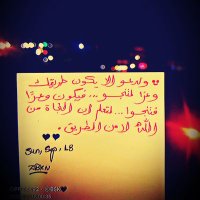 وندعو ألا يكون طريقك
وعرا لننجو...، فيكون وعرًا
فننجوا... لنعلم ان النجاة من
اللّٰه لا من الطريق.
Sun, Sep, 18